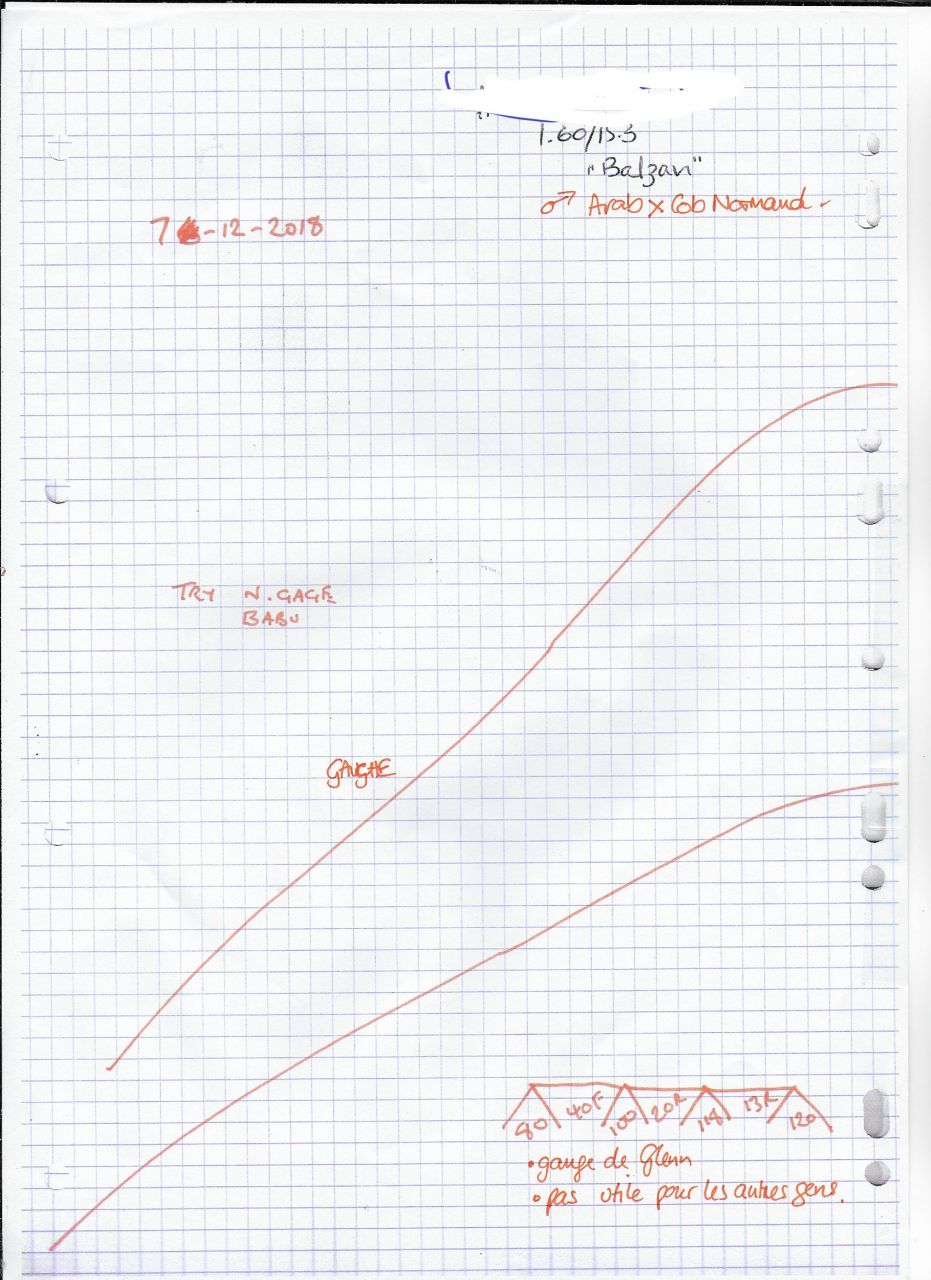 1.60/15.3
"Balzan"
♂ Arab x Cob Normand -
7 -12-2018
TRY N. GAGE
BABU
GAUCHE
80 40F 100 20R 114 13R 120
• gauge de Glenn
• pas utile pour les autres gens.